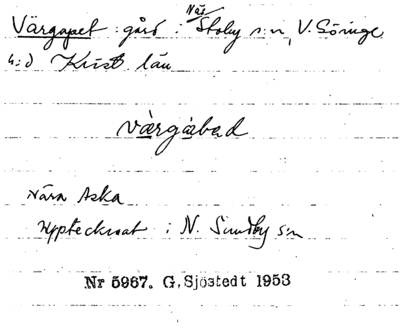 Värgapet : gård i Näs Stoby s:n, V. Göinge
h:d Krist län
värgabad
Nära Aska
Upptecknat i N. Sandby sn
Nr 5967. G. Sjöstedt 1953